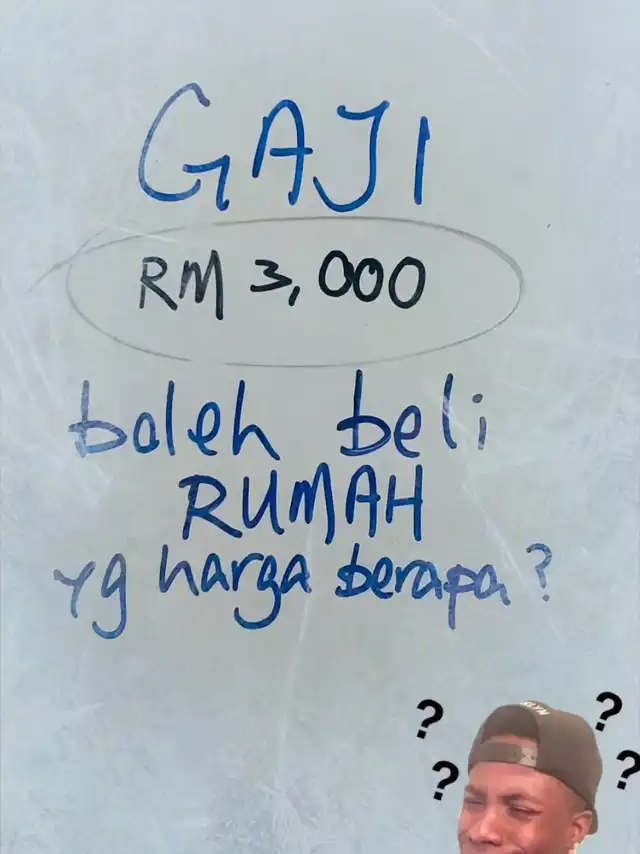 GAJI
RM 3,000
boleh beli
RUMAH
yg harga berapa?
? ?
? ?